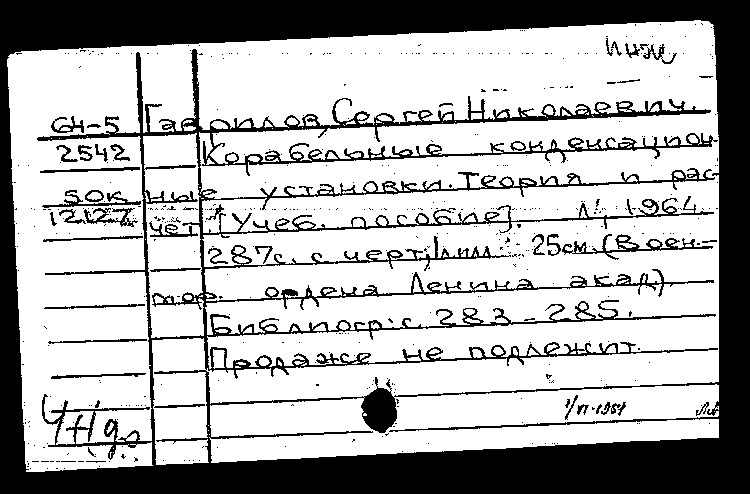 инж
64-5 Гаврилов, Сергей Николаевич.
2542 Корабельные конденсацион-
50к ные установки. Теория и рас-
12127 чет. [Учеб. пособие]. Л., 1964.
287с. с черт; 1 л. илл. 25см. (Воен-
мор. ордена Ленина акад).
Библиогр: с. 283-285.
Продаже не подлежит.